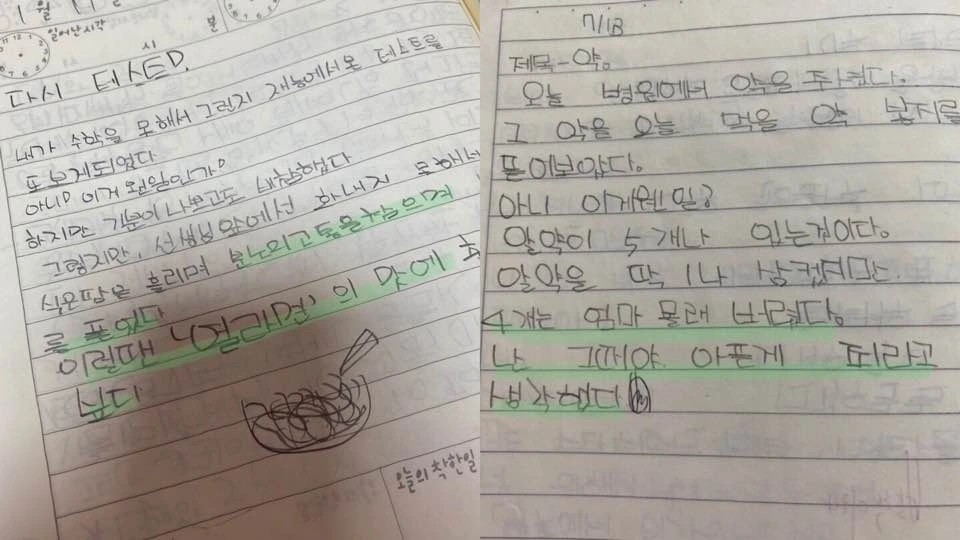 1월
일어난시각
시
분
다시 테스트!
내가 수학을 못해서 그런지 재능에서본 테스트를
또보게되었다
아니! 이거 웬일인가!
하지만 기분이나쁘고도 세찰했다
그렇지만, 선생님앞에선 화내지 못해서
식은땀을 흘리며 분노의고통을누르며
를 풀었다
이럴땐 '열라면' 의 맛에
싶다
오늘의착한일
7/18
제목-약.
오늘 병원에서 약을 주셨다.
그 약을 오늘 먹을 약 봉지를
뜯어보았다.
아니 이게웬일?
알약이 5개나 있는것이다.
알약을 딱 1나 삼켰지만.
4개는 엄마 몰래 버렸다.
난 그때야 아픈게 죄라고
생각했다